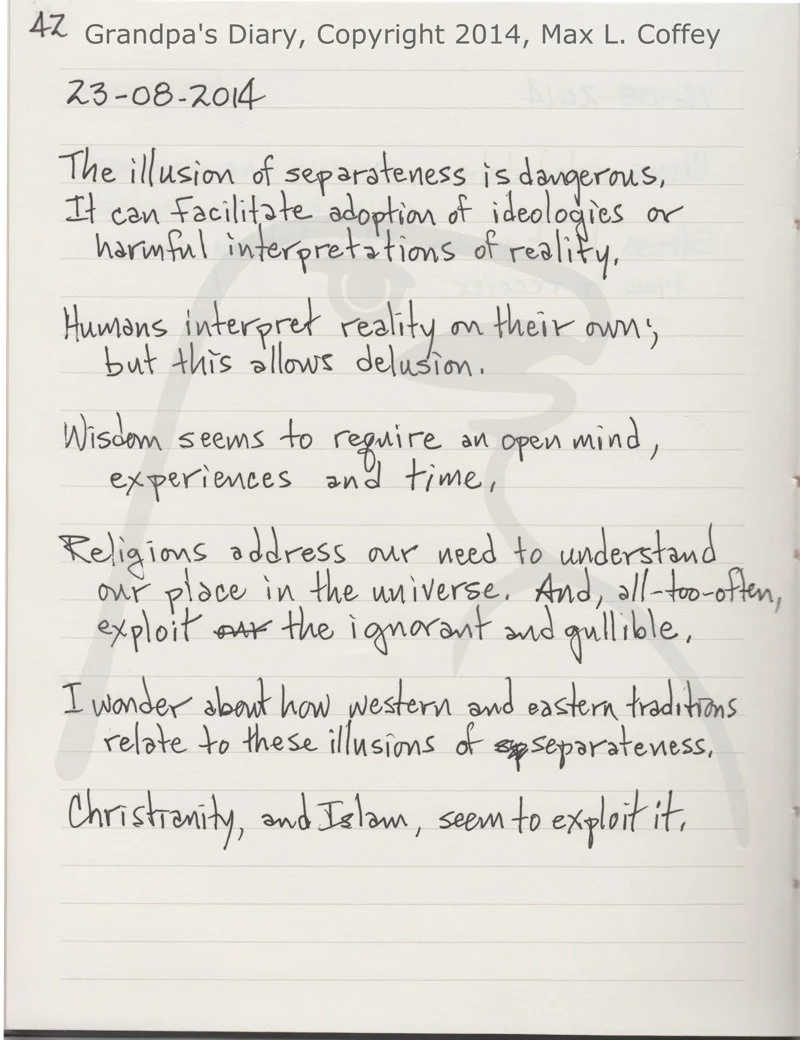 42 Grandpa's Diary, Copyright 2014, Max L. Coffey
23-08-2014
The illusion of separateness is dangerous.
It can facilitate adoption of ideologies or
harmful interpretations of reality.
Humans interpret reality on their own;
but this allows delusion.
Wisdom seems to require an open mind,
experiences and time.
Religions address our need to understand
our place in the universe. And, all-too-often,
exploit our the ignorant and gullible.
I wonder about how western and eastern traditions
relate to these illusions of sp separateness.
Christianity, and Islam, seem to exploit it.